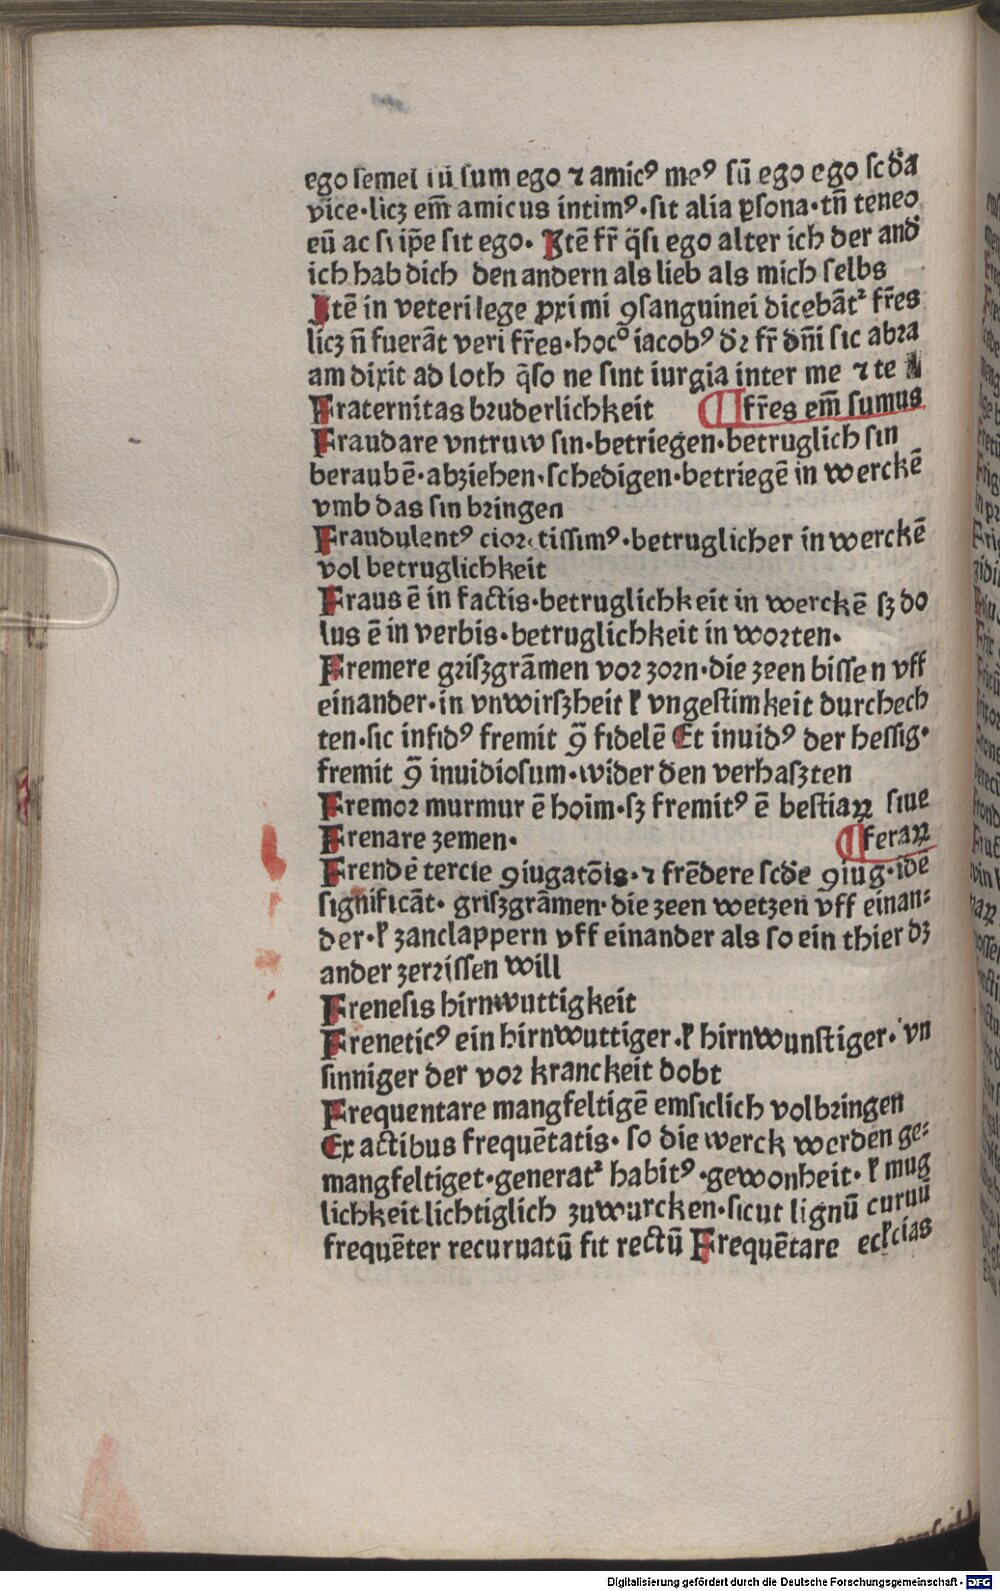 ego semel iū sum ego ⁊ amicꝰ meꝰ sū ego ego scd̄a
vice·licꝫ em̄ amicus intimꝰ·sit alia ꝑsona·tn̄ teneo
eū ac si ip̄e sit ego· Itē fr̄ q̄si ego alter ich der and̄
ich hab dich den andern als lieb als mich selbs
Itē in veteri lege ꝓximi ꝯsanguinei dicebāt᷑ fr̄es
licꝫ n̄ fuerāt veri fr̄es·hocͦ iacobꝰ dr̄ fr̄ dn̄i sic abra
am dixit ad loth q̄so ne sint iurgia inter me ⁊ te
Fraternitas bruderlichkeit ¶ fr̄es em̄ sumus
Fraudare vntruw sin·betriegen·betruglich sin
beraubē·abziehen·schedigen·betriegē in werckē
vmb das sin bringen
Fraudulentꝰ cior·tissimꝰ·betruglicher in werckē
vol betruglichkeit
Fraus ē in factis·betruglichkeit in werckē sꝫ do
lus ē in verbis·betruglichkeit in worten·
Fremere griszgrāmen vor zorn·die zeen bissen vff
einander·in vnwirszheit ꝉ vngestimkeit durchech
ten·sic infidꝰ fremit ꝯ̄ fidelē Et inuidꝰ der hessig·
fremit ꝯ̄ inuidiosum·wider den verhaszten
Fremor murmur ē hoīm·sꝫ fremitꝰ ē bestiaꝝ siue
Frenare zemen· ¶ feraꝝ
Frendē tercie ꝯiugatōis·⁊ frēdere scd̄e ꝯiug·idē
significāt· griszgrāmen·die zeen wetzen vff einan⸗
der·ꝉ zanclappern vff einander als so ein thier dꝫ
ander zerrissen will
Frenesis hirnwuttigkeit
Freneticꝰ ein hirnwuttiger·ꝉ hirnwunstiger·vn
sinniger der vor kranckeit dobt
Frequentare mangfeltigē emsiclich volbringen
Ex actibus frequētatis· so die werck werden ge⸗
mangfeltiget·generat᷑ habitꝰ·gewonheit·ꝉ mug
lichkeit lichtiglich zuwurcken·sicut lignū curuū
frequēter recuruatū fit rectū Frequētare eccl̄cias
Digitalisierung gefördert durch die Deutsche Forschungsgemeinschaft - DFG